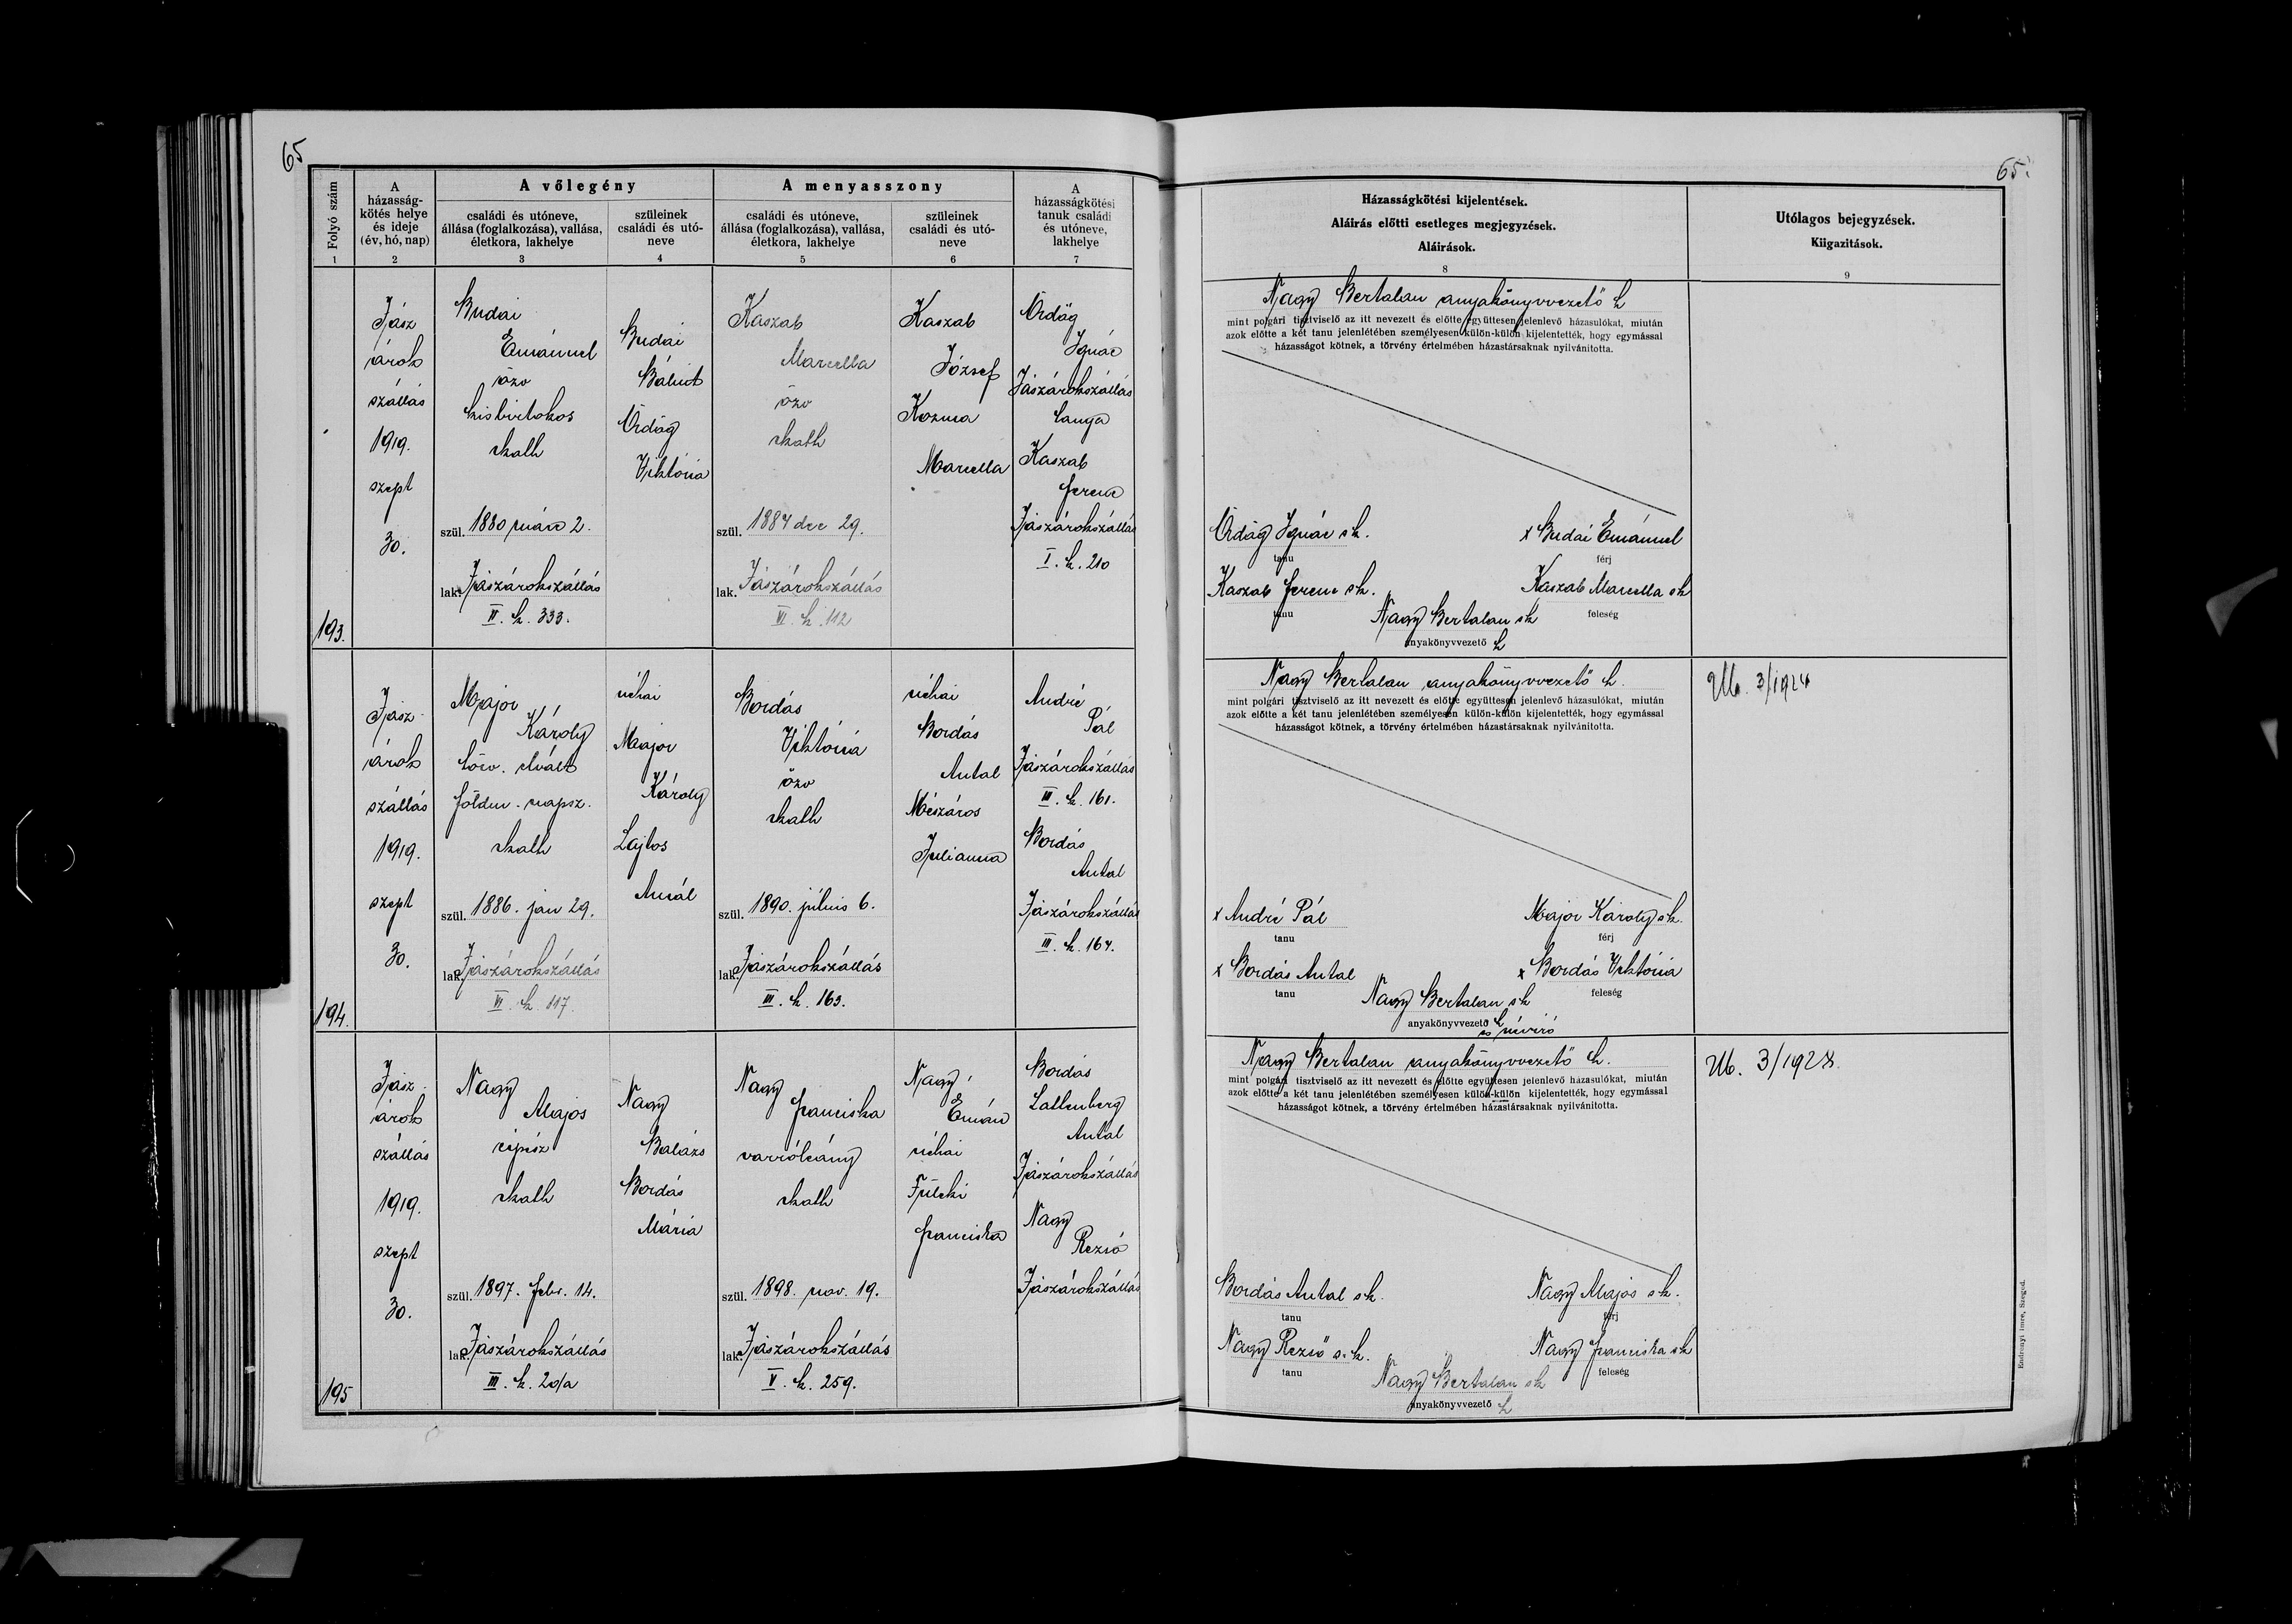 65
65.
Folyó szám
1
A
házasság-
kötés helye
és ideje
(év, hó, nap)
2
A vőlegény
családi és utóneve,
állása (foglalkozása), vallása,
életkora, lakhelye
3
szüleinek
családi és utó-
neve
4
A menyasszony
családi és utóneve,
állása (foglalkozása), vallása,
életkora, lakhelye
5
szüleinek
családi és utó-
neve
6
A
házasságkötési
tanuk családi
és utóneve,
lakhelye
7
Házasságkötési kijelentések.
Aláirás előtti esetleges megjegyzések.
Aláirások.
8
Utólagos bejegyzések.
Kiigazitások.
9
193.
Jász
árok
szállás
1919.
szept
30.
Budai
Emánuel
özv
kisbirtokos
rkath
szül. 1880 márc 2.
lak. Jászárokszállás
II. k. 333.
Budai
Bálint
Ördög
Viktória
Kaszab
Marcella
özv
rkath
szül. 1884 dec 29.
lak. Jászárokszállás
VI. k. 112
Kaszab
József
Kozma
Marcella
Ördög
Ignác
Jászárokszállás
tanya
Kaszab
Ferenc
Jászárokszállás
I. k. 210
Nagy Bertalan anyakönyvvezető h
mint polgári tisztviselő az itt nevezett és előtte együttesen jelenlevő házasulókat, miután
azok előtte a két tanu jelenlétében személyesen külön-külön kijelentették, hogy egymással
házasságot kötnek, a törvény értelmében házastársaknak nyilvánította.
Ördög Ignác sk.
tanu
x Budai Emánuel
férj
Kaszab Ferenc sk.
tanu
Kaszab Marcella sk
feleség
Nagy Bertalan sk
anyakönyvvezető h
194.
Jász-
árok
szállás
1919.
szept
30.
Major
Károly
törv. elvált
földm. napsz.
rkath
szül. 1886. jan 29.
lak. Jászárokszállás
VI. k. 117.
néhai
Major
Károly
Lajtos
Amál
Bordás
Viktória
özv
rkath
szül. 1890. július 6.
lak. Jászárokszállás
III. k. 163.
néhai
Bordás
Antal
Mészáros
Julianna
André
Pál
Jászárokszállás
III. k. 161.
Bordás
Antal
Jászárokszállás
III. k. 164.
Nagy Bertalan anyakönyvvezető h.
mint polgári tisztviselő az itt nevezett és előtte együttesen jelenlevő házasulókat, miután
azok előtte a két tanu jelenlétében személyesen külön-külön kijelentették, hogy egymással
házasságot kötnek, a törvény értelmében házastársaknak nyilvánította.
x André Pál
tanu
Major Károly sk.
férj
x Bordás Antal
tanu
x Bordás Viktória
feleség
Nagy Bertalan sk
anyakönyvvezető h
és névíró
Ub. 3/1924
195
Jász-
árok
szállás
1919.
szept
30.
Nagy
Alajos
cipész
rkath
szül. 1897. febr. 14.
lak. Jászárokszállás
III. k. 20/a
Nagy
Balázs
Bordás
Mária
Nagy
Franciska
varróleány
rkath
szül. 1898. nov. 19.
lak. Jászárokszállás
V. k. 259.
Nagy
Emán
néhai
Füleki
Franciska
Bordás
Antal
Jászárokszállás
Nagy
Rezső
Jászárokszállás
Nagy Bertalan anyakönyvvezető h.
mint polgári tisztviselő az itt nevezett és előtte együttesen jelenlevő házasulókat, miután
azok előtte a két tanu jelenlétében személyesen külön-külön kijelentették, hogy egymással
házasságot kötnek, a törvény értelmében házastársaknak nyilvánította.
Bordás Antal sk.
tanu
Nagy Alajos sk.
férj
Nagy Rezső s.k.
tanu
Nagy Franciska sk
feleség
Nagy Bertalan sk
anyakönyvvezető h
Ub. 3/1928.
Endrényi Imre, Szeged.